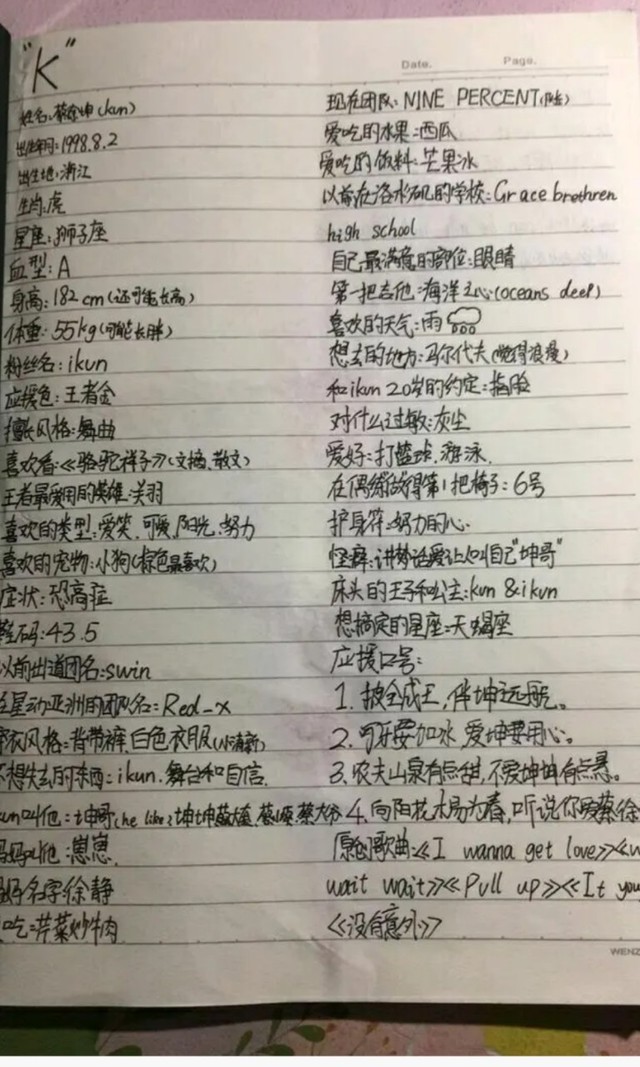 "K"
Date. Page.
姓名:蔡徐坤(kun)
出生年月:1998.8.2
出生地:浙江
生肖:虎
星座:狮子座
血型:A
身高:182cm(还可能长高)
体重:55kg(可能长胖)
粉丝名:ikun
应援色:王者金
擅长风格:舞曲
喜欢看:《骆驼祥子》(文摘、散文)
王者最爱用的英雄:关羽
喜欢的类型:爱笑、可爱、阳光、努力
喜欢的宠物:小狗(棕色最喜欢)
症状:恐高症
鞋码:43.5
以前出道团名:swin
在星动亚洲的团队名:Red_x
穿衣风格:背带裤,白色衣服(小清新)
不想失去的东西:ikun、舞台和自信
kun叫他:坤哥(he like)坤坤
妈妈叫他:崽崽.
妈妈名字徐静
吃:芹菜炒牛肉
现在团队:NINE PERCENT(队长)
爱吃的水果:西瓜
爱吃的饮料:芒果冰
以前在洛水矶的学校:Grace brethren
high school
自己最满意的部位:眼睛
第一把吉他:海洋之心(oceans deep)
喜欢的天气:雨
想去的地方:马尔代夫(觉得浪漫)
和ikun 20岁的约定:
对什么过敏:灰尘
爱好:打篮球、游泳.
在偶练做得第1把椅子:6号
护身符:努力的心.
怪癖:讲梦话爱让人叫自己"坤哥"
床头的王子和公主:kun & ikun
想搞定的星座:天蝎座
应援口号:
1. 披金成王,伴坤远航。
2. 可牙要加水,爱坤要用心。
3. 农夫山泉有点甜,不爱坤坤有点悬。
4. 向阳花木易为春,听说你爱蔡徐
原创歌曲:《I wanna get love》《w
wait wait》《Pull up》《It you
《没有意外》
WENZ